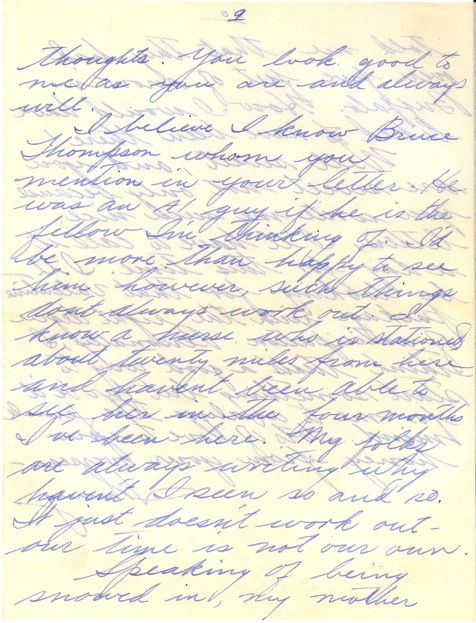 9
thoughts. You look good to
me as you are and always
will.
I believe I know Bruce
Thompson whom you
mention in your letter. He
was an A1 guy if he is the
fellow I'm thinking of. I'd
be more than happy to see
him, however, such things
don't always work out. I
know a nurse who is stationed
about twenty miles from here
and haven't been able to
see her in the four months
I've been here. My folks
are always writing why
haven't I seen so and so.
It just doesn't work out -
our time is not our own.
Speaking of being
snowed in, my mother